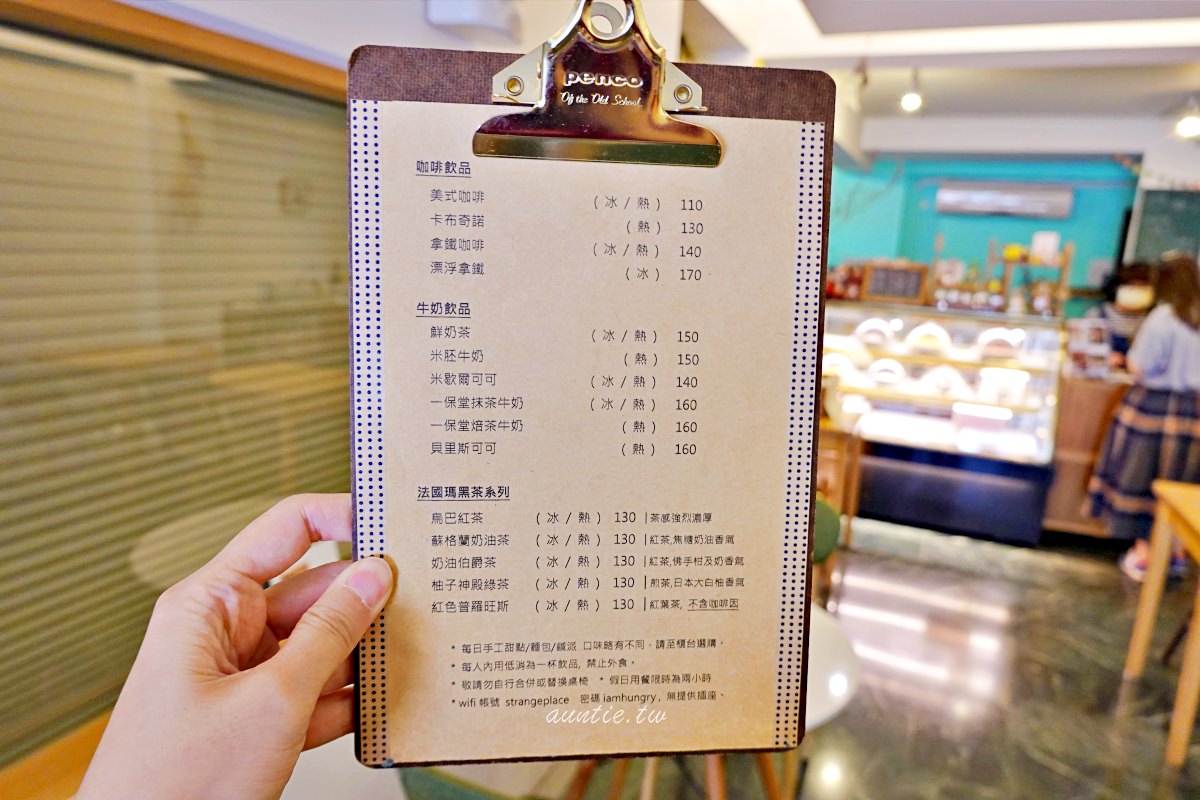 penco
Of the Old School
咖啡飲品
美式咖啡 ( 冰 / 熱 ) 110
卡布奇諾 ( 熱 ) 130
拿鐵咖啡 ( 冰 / 熱 ) 140
漂浮拿鐵 ( 冰 ) 170
牛奶飲品
鮮奶茶 ( 冰 / 熱 ) 150
米胚牛奶 ( 熱 ) 150
米歇爾可可 ( 冰 / 熱 ) 140
一保堂抹茶牛奶 ( 冰 / 熱 ) 160
一保堂焙茶牛奶 ( 熱 ) 160
貝里斯可可 ( 熱 ) 160
法國瑪黑茶系列
烏巴紅茶 ( 冰 / 熱 ) 130 |茶感強烈濃厚
蘇格蘭奶油茶 ( 冰 / 熱 ) 130 |紅茶,焦糖奶油香氣
奶油伯爵茶 ( 冰 / 熱 ) 130 |紅茶,佛手柑及奶香氣
柚子神殿綠茶 ( 冰 / 熱 ) 130 |煎茶,日本大白柚香氣
紅色普羅旺斯 ( 冰 / 熱 ) 130 |紅葉茶, 不含咖啡因
* 每日手工甜點/麵包/鹹派 口味略有不同，請至櫃台選購。
* 每人內用低消為一杯飲品, 禁止外食。
* 敬請勿自行合併或替換桌椅 * 假日用餐限時為兩小時
* wifi 帳號 strangeplace 密碼 iamhungry, 無提供插座。
auntie.tw